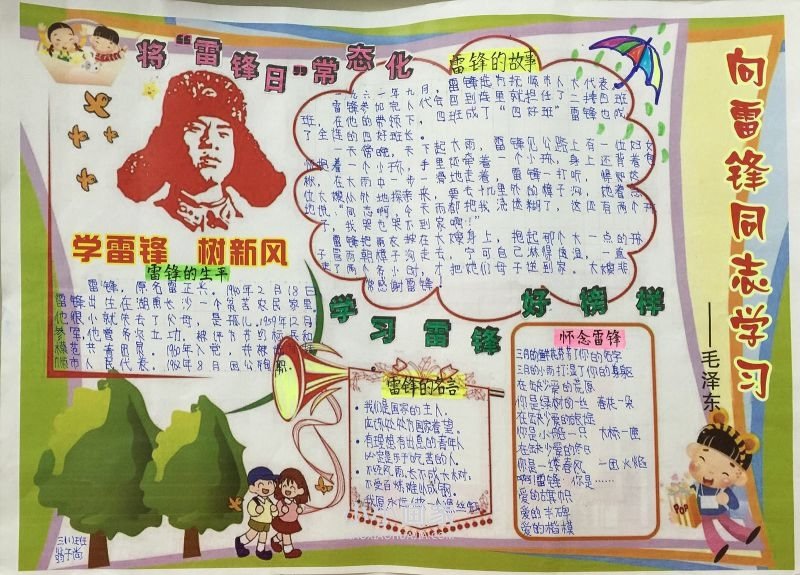 将“雷锋日”常态化
向雷锋同志学习
——毛泽东
学雷锋 树新风
雷锋的生平
雷锋，原名雷正兴，1940年2月18日
雷锋出生在湖南长沙一个贫苦农民家里。
他很小就失去了父母，是孤儿。1959年12月
参军，他曾多次立功，被评为节约标兵和
模范共青团员。1960年入党，并被
市人民代表。1962年8月因公殉职。
雷锋的故事
一九六一年九月，雷锋
雷锋参加完人代会回到连里就担任了二排四班
班，在他的带领下，四班成了“四好班”雷锋也成
了全连的四好班长。
一天傍晚，天下起大雨，雷锋见公路上有一位妇女
怀抱着一个小孩，手里还牵着一个小孩，身上还背着包
袱，在大雨中一步一滑地走着，雷锋一打听，得知这
位大嫂从外地探亲来，要去十几里外的樟子沟，她着急
地说：“同志啊，今天雨都把我浇迷糊了，这还有两个孩
子，我哭也哭不到家啊！”
雷锋把雨衣披在大嫂身上，抱起那个大一点的孩
子冒雨朝樟子沟走去，宁可自己淋得透湿，一直
走了两个多小时，才把她们母子送到家。大嫂非
常感谢雷锋！
学习雷锋 好榜样
雷锋的名言
我们是国家的主人，
应该处处为国家着想。
有理想有出息的青年人
必定是乐于吃苦的人。
不经风雨，长不成大树；
不受百炼，难以成钢。
我愿永远做一个螺丝钉
怀念雷锋
三月的鲜花
三月的小雨打湿了你的身躯
在缺少爱的荒原
你是绿树的一丝 春花一朵
在缺少爱的旅途
你是小船一只
在缺少爱的冬日
你是一缕春风 一团火焰
啊！雷锋，你是……
爱的旗帜
爱的丰碑
爱的楷模
POP